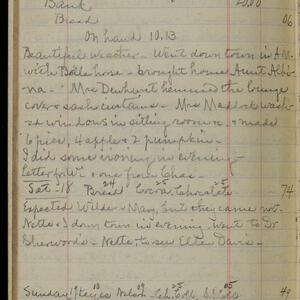 Bank 20.00
Bread 06
On hand 10.13
Beautiful weather - Went down town in A.M.
with Balls horse - brought home Aunt Albi-
na - Mrs Dewhurst hemmed the lounge
cover & sash curtains - Mrs Maddock wash-
ed windows in sitting room & made
6 pies, 4 apple & 2 pumpkin -
I did some ironing in evening
Letter for W & one from Chas -
Sat - 18 Bread 24 Cocoa Chocolate 25 74
Expected Wilder & Mary, but they came not -
Nette & I down town in evening, went to Dr
Sherwoods - Nette to see Ettie Davis -
Sunday 19 10 Nelson 09 Coll. 25 S.S. Coll 05 49